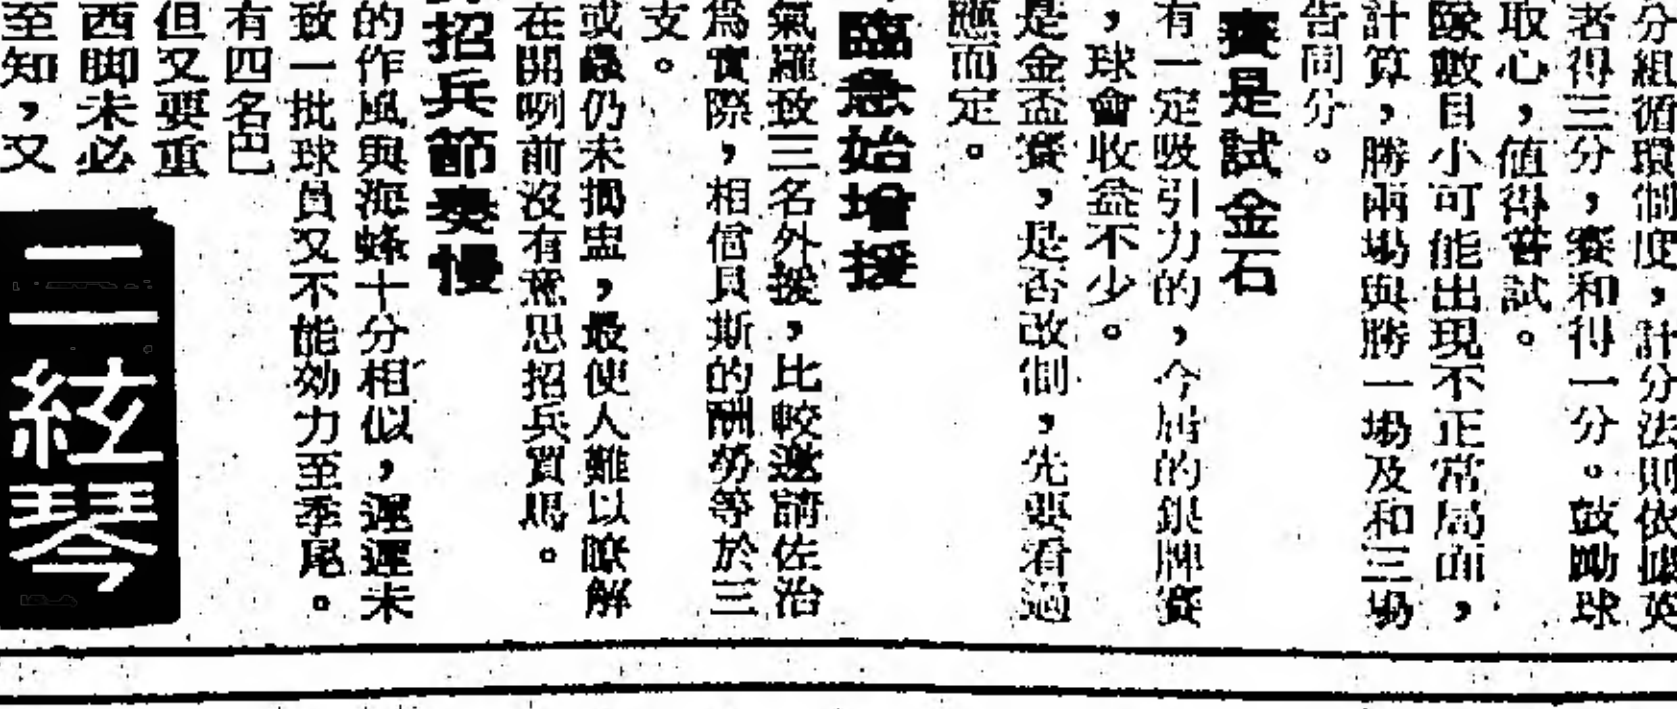 分組循環制度，計分法則依據英
者得三分，賽和得一分。鼓勵球
取心，值得嘗試。
隊數目小可能出現不正常局面，
計算，勝兩場與勝一場及和三場
告同分。
賽是試金石
有一定吸引力的，今屆的銀牌賽
，球會收益不少。
是金盃賽，是否改制，先要看過
應而定。
臨急始增援
氣羅致三名外援，比較邀請佐治
為實際，相信貝斯的酬勞等於三
支。
或蟲仍未揭盅，最使人難以瞭解
在開咧前沒有意思招兵買馬。
招兵節奏慢
的作風與海蜂十分相似，遲遲未
致一批球員又不能効力至季尾。
有四名巴
但又要重
西脚未必
至知，又
二絃琴